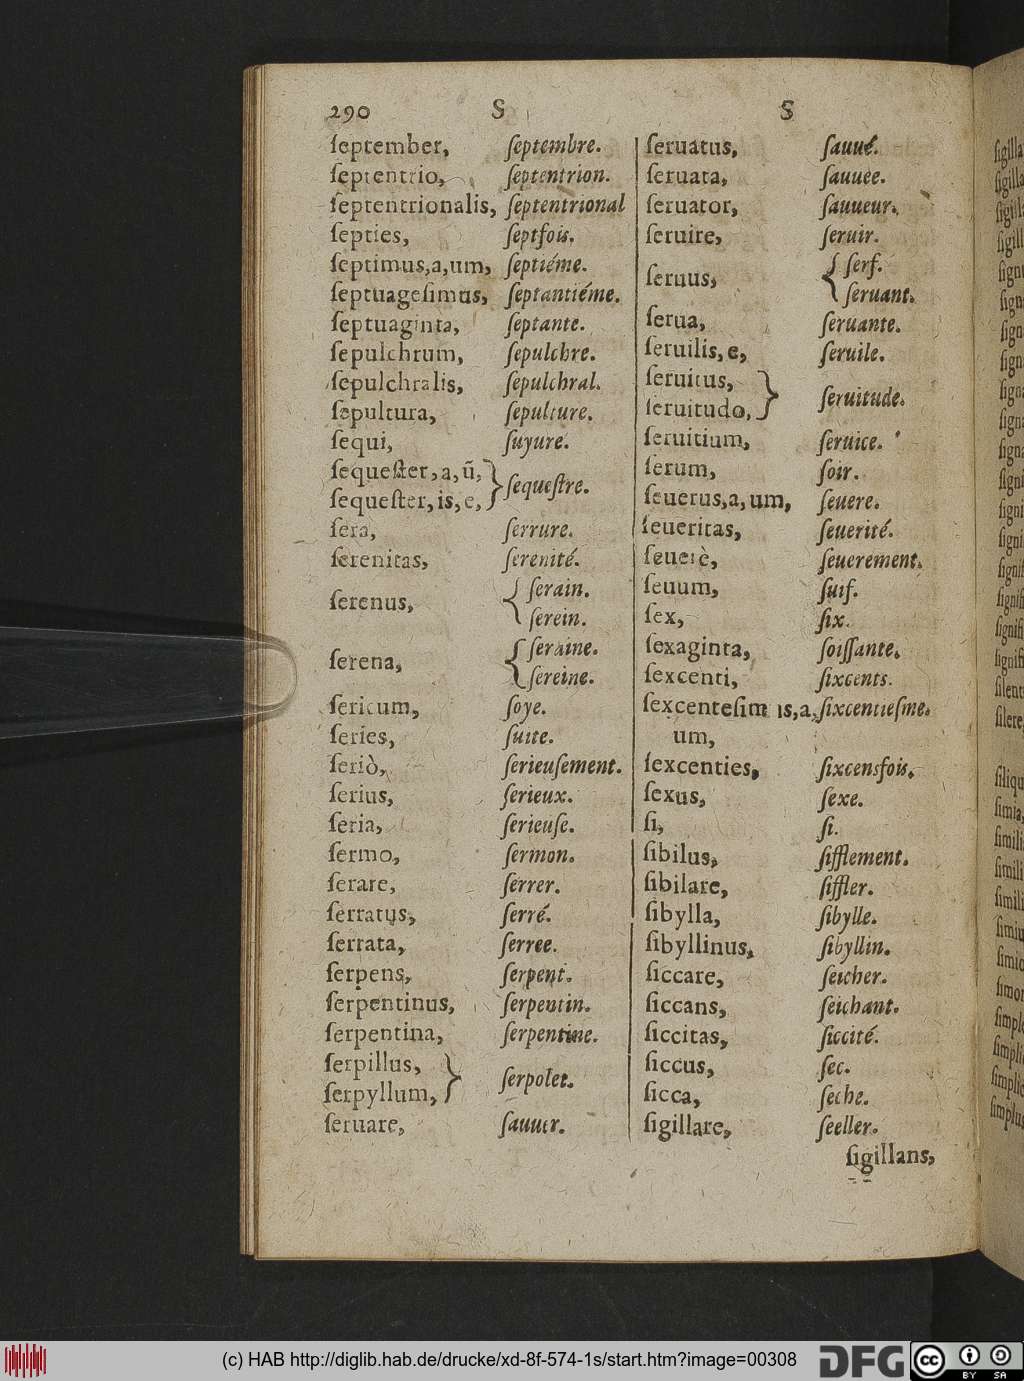 290 S S
ſeptember, ſeptembre.
ſeptentrio, ſeptentrion.
ſeptentrionalis, ſeptentrional
ſepties, ſeptfois.
ſeptimus,a,um, ſeptiéme.
ſeptuageſimus, ſeptantiéme.
ſeptuaginta, ſeptante.
ſepulchrum, ſepulchre.
ſepulchralis, ſepulchral.
ſepultura, ſepulture.
ſequi, ſuyure.
ſequeſter,a,ũ,
ſequeſter,is,e, } ſequeſtre.
ſera, ſerrure.
ſerenitas, ſerenité.
ſerenus, { ſerain.
ſerein.
ſerena, { ſeraine.
ſereine.
ſericum, ſoye.
ſeries, ſuite.
ſeriò, ſerieuſement.
ſerius, ſerieux.
ſeria, ſerieuſe.
ſermo, ſermon.
ſerare, ſerrer.
ſerratus, ſerré.
ſerrata, ſerree.
ſerpens, ſerpent.
ſerpentinus, ſerpentin.
ſerpentina, ſerpentine.
ſerpillus,
ſerpyllum, } ſerpolet.
ſeruare, ſauuer.
ſeruatus, ſauué.
ſeruata, ſauuee.
ſeruator, ſauueur.
ſeruire, ſeruir.
ſeruus, { ſerf.
ſeruant.
ſerua, ſeruante.
ſeruilis,e, ſeruile.
ſeruitus,
ſeruitudo, } ſeruitude.
ſeruitium, ſeruice.
ſerum, ſoir.
ſeuerus,a,um, ſeuere.
ſeueritas, ſeuerité.
ſeuerè, ſeuerement.
ſeuum, ſuif.
ſex, ſix.
ſexaginta, ſoiſſante.
ſexcenti, ſixcents.
ſexcenteſimus,a, ſixcentieſme.
um,
ſexcenties, ſixcensfois.
ſexus, ſexe.
ſi, ſi.
ſibilus, ſifflement.
ſibilare, ſiffler.
ſibylla, ſibylle.
ſibyllinus, ſibyllin.
ſiccare, ſeicher.
ſiccans, ſeichant.
ſiccitas, ſiccité.
ſiccus, ſec.
ſicca, ſeche.
ſigillare, ſeeller.
ſigillans,
(c) HAB http://diglib.hab.de/drucke/xd-8f-574-1s/start.htm?image=00308
DFG
cc BY SA